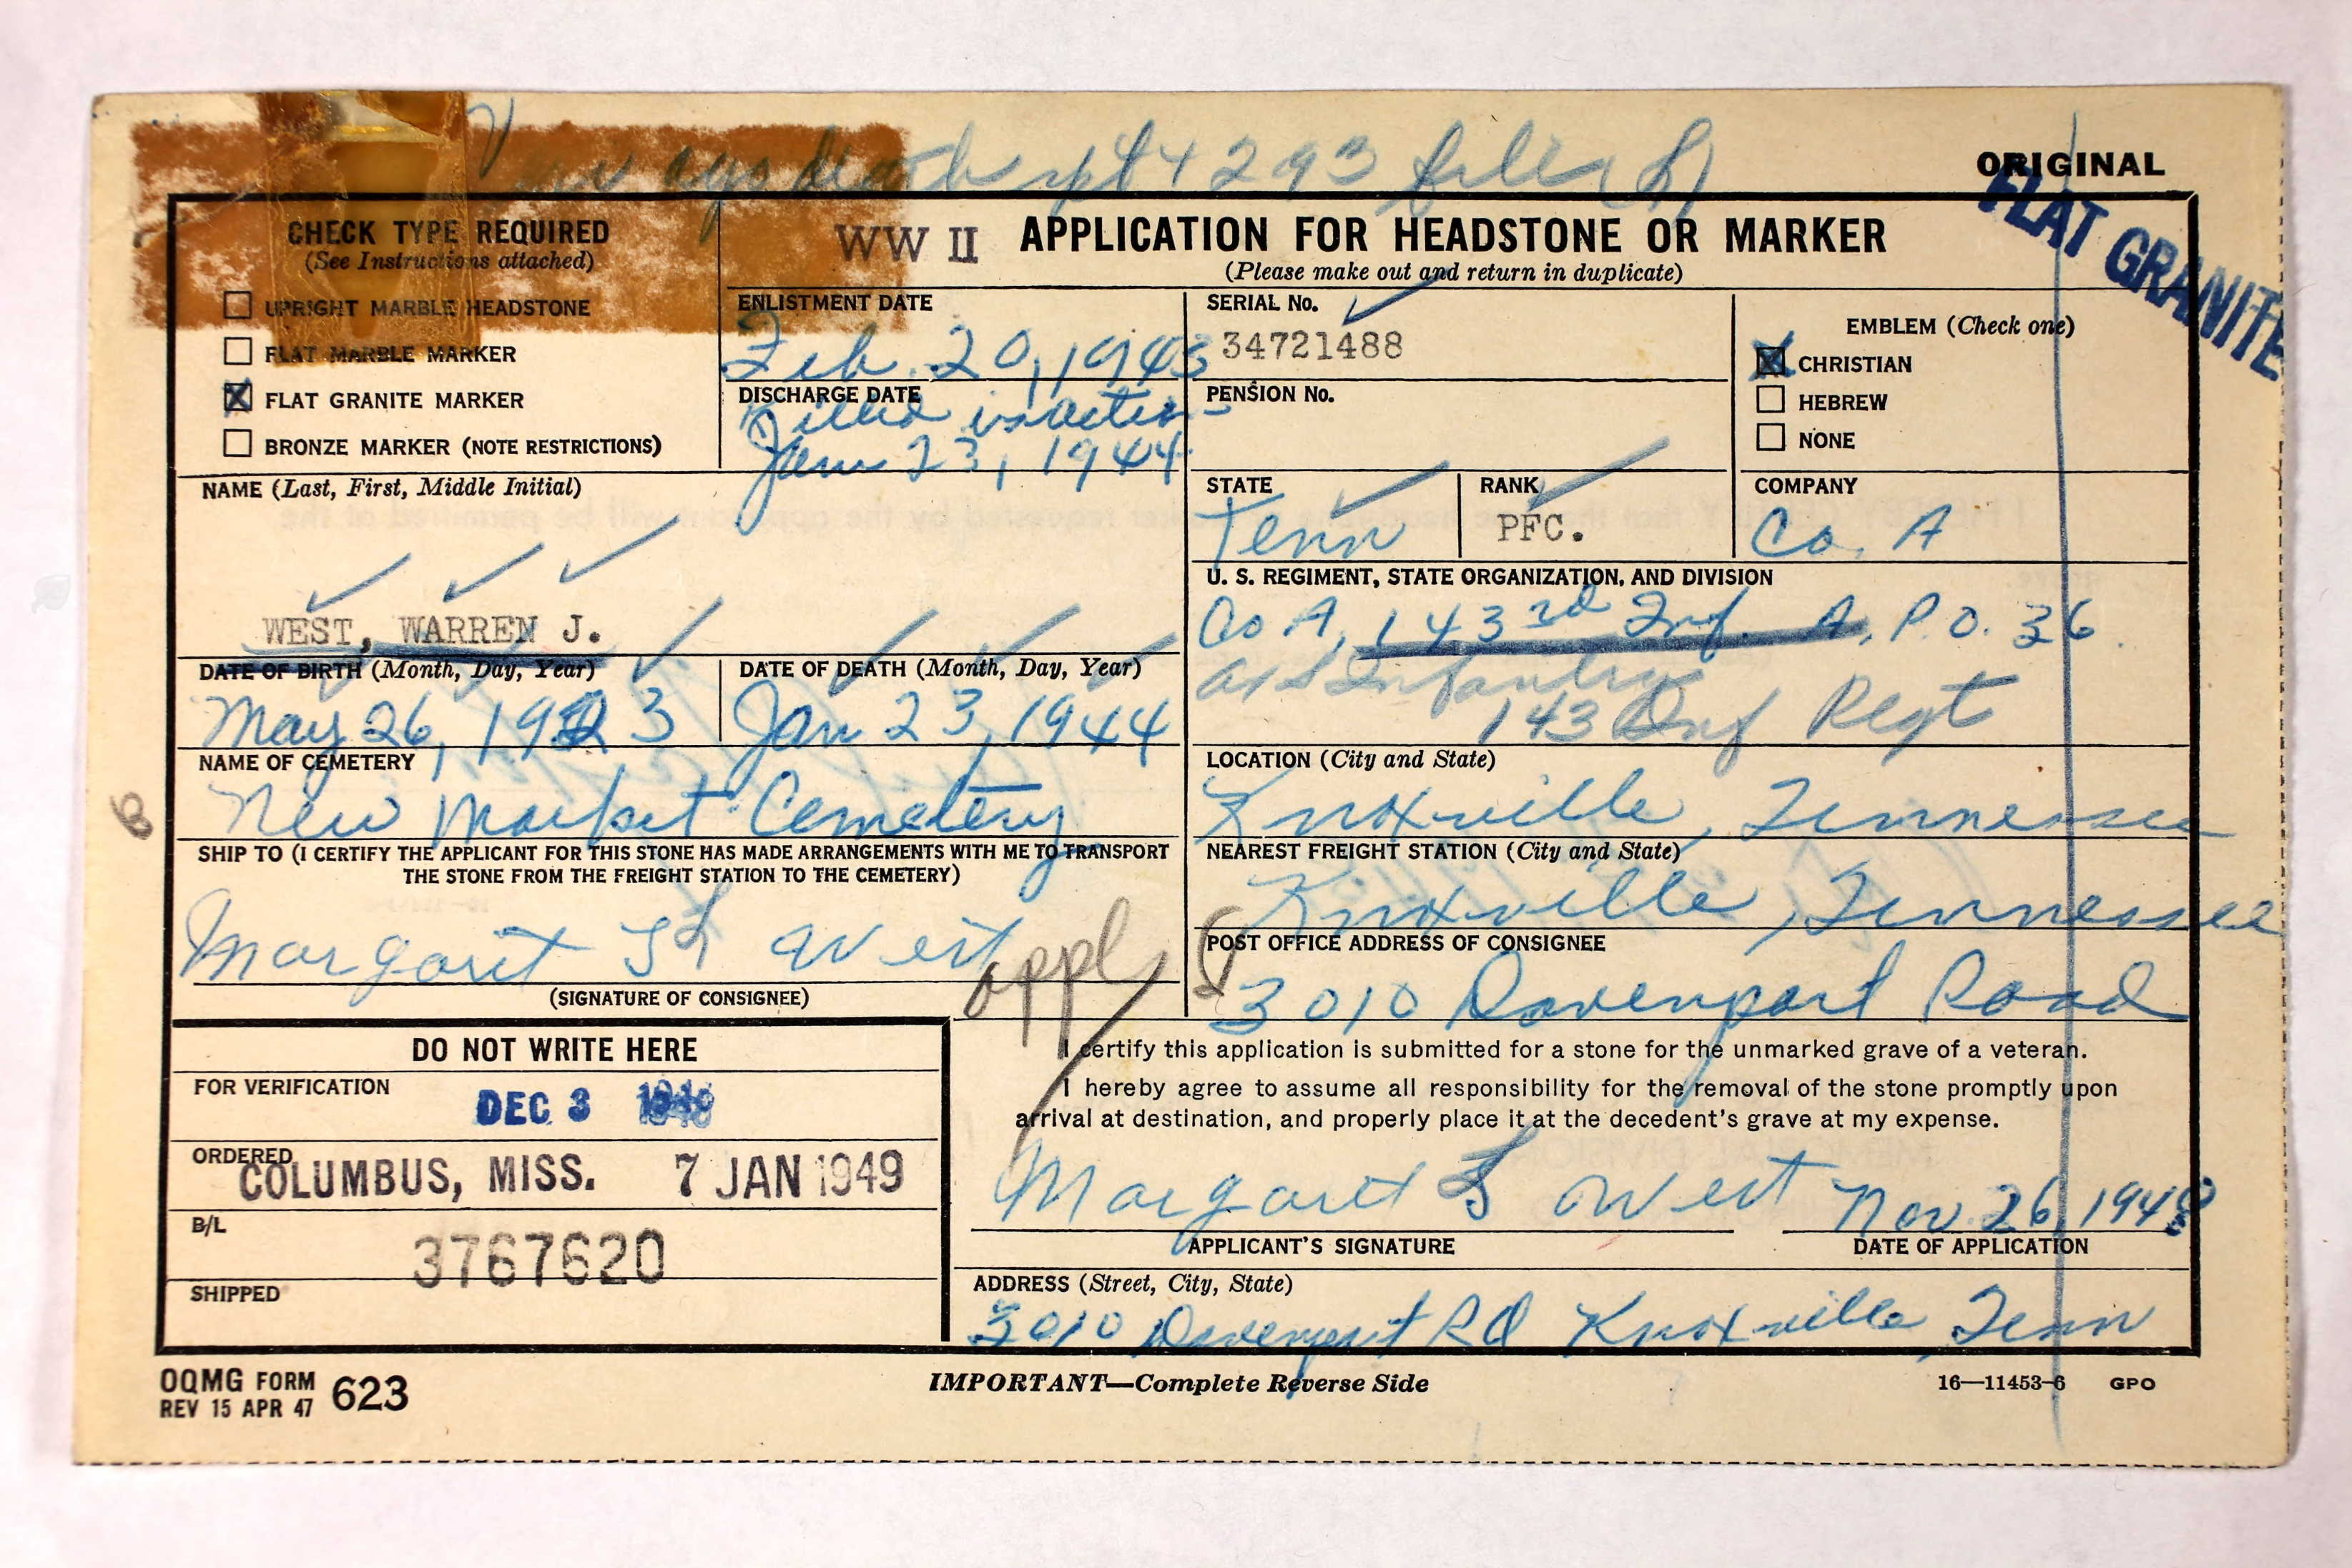 death rpt 4293 file
ORIGINAL
FLAT GRANITE
CHECK TYPE REQUIRED
(See Instructions attached)
UPRIGHT MARBLE HEADSTONE
FLAT MARBLE MARKER
X FLAT GRANITE MARKER
BRONZE MARKER (NOTE RESTRICTIONS)
WW II APPLICATION FOR HEADSTONE OR MARKER
(Please make out and return in duplicate)
ENLISTMENT DATE
Feb. 20, 1943
DISCHARGE DATE
Killed in action
Jan 23, 1944
SERIAL No.
34721488
PENSION No.
EMBLEM (Check one)
X CHRISTIAN
HEBREW
NONE
NAME (Last, First, Middle Initial)
WEST, WARREN J.
STATE
Tenn
RANK
PFC.
COMPANY
Co. A
U. S. REGIMENT, STATE ORGANIZATION, AND DIVISION
Co A, 143rd Inf. A.P.O. 36
Infantry
143 Inf Regt
DATE OF BIRTH (Month, Day, Year)
May 26, 1923
DATE OF DEATH (Month, Day, Year)
Jan 23, 1944
NAME OF CEMETERY
New Market Cemetery
LOCATION (City and State)
Knoxville, Tennessee
SHIP TO (I CERTIFY THE APPLICANT FOR THIS STONE HAS MADE ARRANGEMENTS WITH ME TO TRANSPORT
THE STONE FROM THE FREIGHT STATION TO THE CEMETERY)
Margaret S West
(SIGNATURE OF CONSIGNEE)
appl
NEAREST FREIGHT STATION (City and State)
Knoxville, Tennessee
POST OFFICE ADDRESS OF CONSIGNEE
3010 Davenport Road
DO NOT WRITE HERE
FOR VERIFICATION
DEC 3 1948
ORDERED
COLUMBUS, MISS. 7 JAN 1949
B/L
3767620
SHIPPED
I certify this application is submitted for a stone for the unmarked grave of a veteran.
I hereby agree to assume all responsibility for the removal of the stone promptly upon
arrival at destination, and properly place it at the decedent's grave at my expense.
Margaret S West Nov. 26, 1948
APPLICANT'S SIGNATURE
DATE OF APPLICATION
ADDRESS (Street, City, State)
3010 Davenport Rd Knoxville, Tenn
OQMG FORM 623
REV 15 APR 47
IMPORTANT—Complete Reverse Side
16—11453-6 GPO